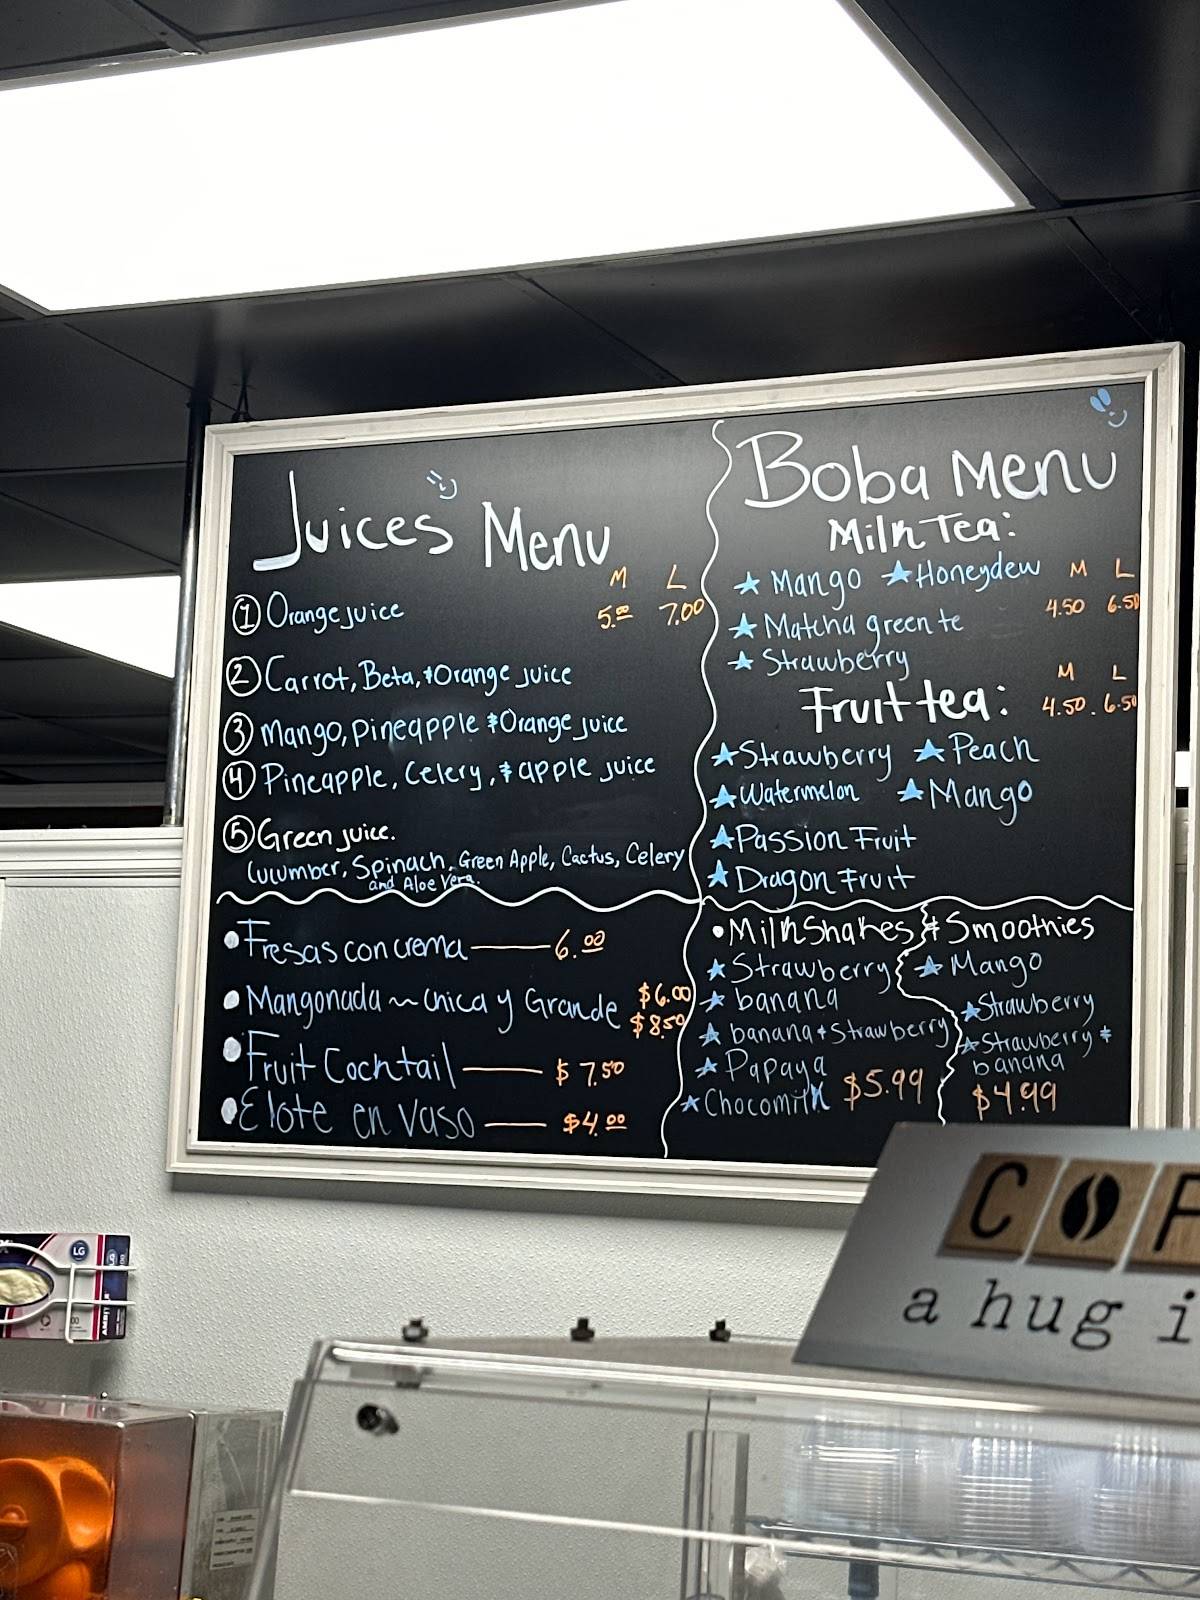 Juices Menu
M L
① Orange juice 5.00 7.00
② Carrot, Beta, & Orange juice
③ Mango, pineapple & Orange juice
④ Pineapple, Celery, & apple juice
⑤ Green juice.
Cucumber, Spinach, Green Apple, Cactus, Celery
and Aloe Vera.
• Fresas con crema — 6.00
• Mangonada ~ chica y Grande $6.00
$8.50
• Fruit Cocktail — $7.50
• Elote en vaso — $4.00
Boba Menu
Milk Tea:
★ Mango ★ Honeydew M L
★ Matcha green te 4.50 6.50
★ Strawberry
M L
Fruit tea: 4.50. 6.50
★ Strawberry ★ Peach
★ Watermelon ★ Mango
★ Passion Fruit
★ Dragon Fruit
• Milkshakes & Smoothies
★ Strawberry
★ banana
★ banana + Strawberry
★ Papaya
★ Chocomilk $5.99
★ Mango
★ Strawberry
★ Strawberry +
banana
$4.99
a hug i
LG